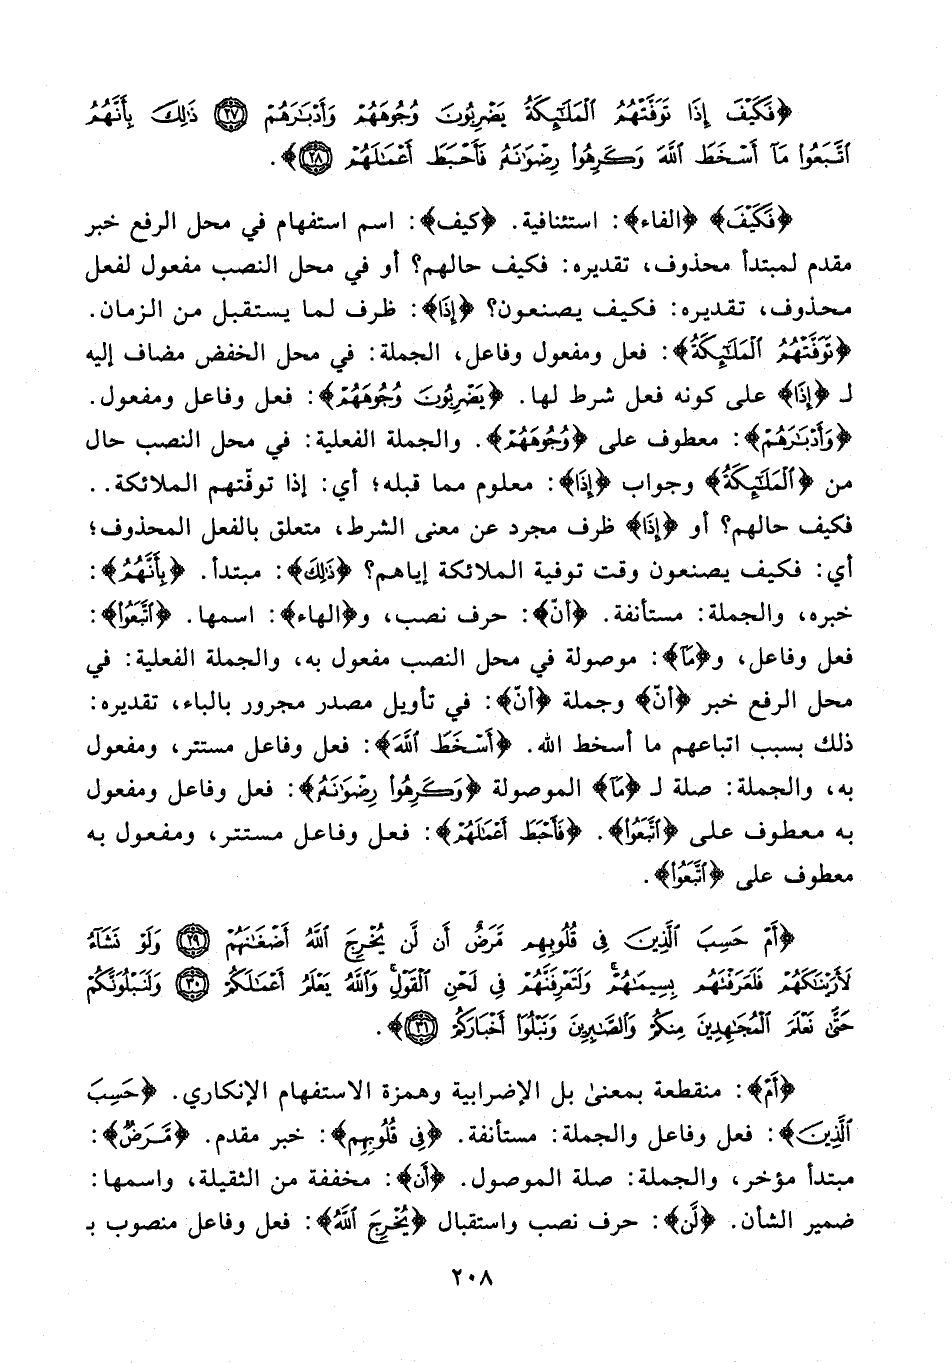 ﴿فَكَيْفَ إِذَا تَوَفَّتْهُمُ الْمَلَٰٓئِكَةُ يَضْرِبُونَ وُجُوهَهُمْ وَأَدْبَٰرَهُمْ ﴿٢٧﴾ ذَٰلِكَ بِأَنَّهُمُ
اتَّبَعُوا مَآ أَسْخَطَ اللَّهَ وَكَرِهُوا رِضْوَٰنَهُ فَأَحْبَطَ أَعْمَٰلَهُمْ ﴿٢٨﴾﴾.
﴿فَكَيْفَ﴾ ﴿الفاء﴾: استئنافية. ﴿كيف﴾: اسم استفهام في محل الرفع خبر
مقدم لمبتدأ محذوف، تقديره: فكيف حالهم؟ أو في محل النصب مفعول لفعل
محذوف، تقديره: فكيف يصنعون؟ ﴿إِذَا﴾: ظرف لما يستقبل من الزمان.
﴿تَوَفَّتْهُمُ الْمَلَٰٓئِكَةُ﴾: فعل ومفعول وفاعل، الجملة: في محل الخفض مضاف إليه
لـ ﴿إِذَا﴾ على كونه فعل شرط لها. ﴿يَضْرِبُونَ وُجُوهَهُمْ﴾: فعل وفاعل ومفعول.
﴿وَأَدْبَٰرَهُمْ﴾: معطوف على ﴿وُجُوهَهُمْ﴾. والجملة الفعلية: في محل النصب حال
من ﴿الْمَلَٰٓئِكَةُ﴾ وجواب ﴿إِذَا﴾: معلوم مما قبله؛ أي: إذا توفّتهم الملائكة..
فكيف حالهم؟ أو ﴿إِذَا﴾ ظرف مجرد عن معنى الشرط، متعلق بالفعل المحذوف؛
أي: فكيف يصنعون وقت توفية الملائكة إياهم؟ ﴿ذَٰلِكَ﴾: مبتدأ. ﴿بِأَنَّهُمُ﴾:
خبره، والجملة: مستأنفة. ﴿أنّ﴾: حرف نصب، و﴿الهاء﴾: اسمها. ﴿اتَّبَعُوا﴾:
فعل وفاعل، و﴿مَآ﴾: موصولة في محل النصب مفعول به، والجملة الفعلية: في
محل الرفع خبر ﴿أنّ﴾ وجملة ﴿أنّ﴾: في تأويل مصدر مجرور بالباء، تقديره:
ذلك بسبب اتباعهم ما أسخط الله. ﴿أَسْخَطَ اللَّهَ﴾: فعل وفاعل مستتر، ومفعول
به، والجملة: صلة لـ ﴿مَآ﴾ الموصولة ﴿وَكَرِهُوا رِضْوَٰنَهُ﴾: فعل وفاعل ومفعول
به معطوف على ﴿اتَّبَعُوا﴾. ﴿فَأَحْبَطَ أَعْمَٰلَهُمْ﴾: فعل وفاعل مستتر، ومفعول به
معطوف على ﴿اتَّبَعُوا﴾.
﴿أَمْ حَسِبَ الَّذِينَ فِي قُلُوبِهِم مَّرَضٌ أَن لَّن يُخْرِجَ اللَّهُ أَضْغَٰنَهُمْ ﴿٢٩﴾ وَلَوْ نَشَآءُ
لَأَرَيْنَٰكَهُمْ فَلَعَرَفْتَهُم بِسِيمَٰهُمْ ۚ وَلَتَعْرِفَنَّهُمْ فِي لَحْنِ الْقَوْلِ ۚ وَاللَّهُ يَعْلَمُ أَعْمَٰلَكُمْ ﴿٣٠﴾ وَلَنَبْلُوَنَّكُمْ
حَتَّىٰ نَعْلَمَ الْمُجَٰهِدِينَ مِنكُمْ وَالصَّٰبِرِينَ وَنَبْلُوَا أَخْبَارَكُمْ ﴿٣١﴾﴾.
﴿أَمْ﴾: منقطعة بمعنىٰ بل الإضرابية وهمزة الاستفهام الإنكاري. ﴿حَسِبَ
الَّذِينَ﴾: فعل وفاعل والجملة: مستأنفة. ﴿فِي قُلُوبِهِم﴾: خبر مقدم. ﴿مَّرَضٌ﴾:
مبتدأ مؤخر، والجملة: صلة الموصول. ﴿أَن﴾: مخففة من الثقيلة، واسمها:
ضمير الشأن. ﴿لَّن﴾: حرف نصب واستقبال ﴿يُخْرِجَ اللَّهُ﴾: فعل وفاعل منصوب بـ
٢٠٨